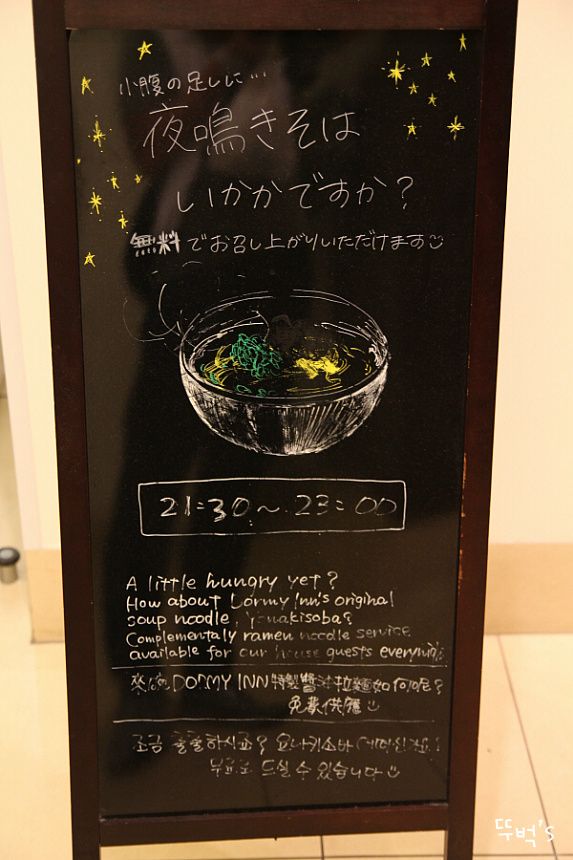 小腹の足しに…
夜鳴きそは
いかかですか?
無料でお召し上がりいただけます
21:30~23:00
A little hungry yet?
How about Dormy Inn's original
soup noodle, Yonakisoba?
Complementaly ramen noodle service
available for our house guests everynight
來碗DORMY INN特製醬油拉麵如何呢?
免費供應
조금 출출하시죠? 요나키소바
무료로 드실 수 있습니다
뚜벅's